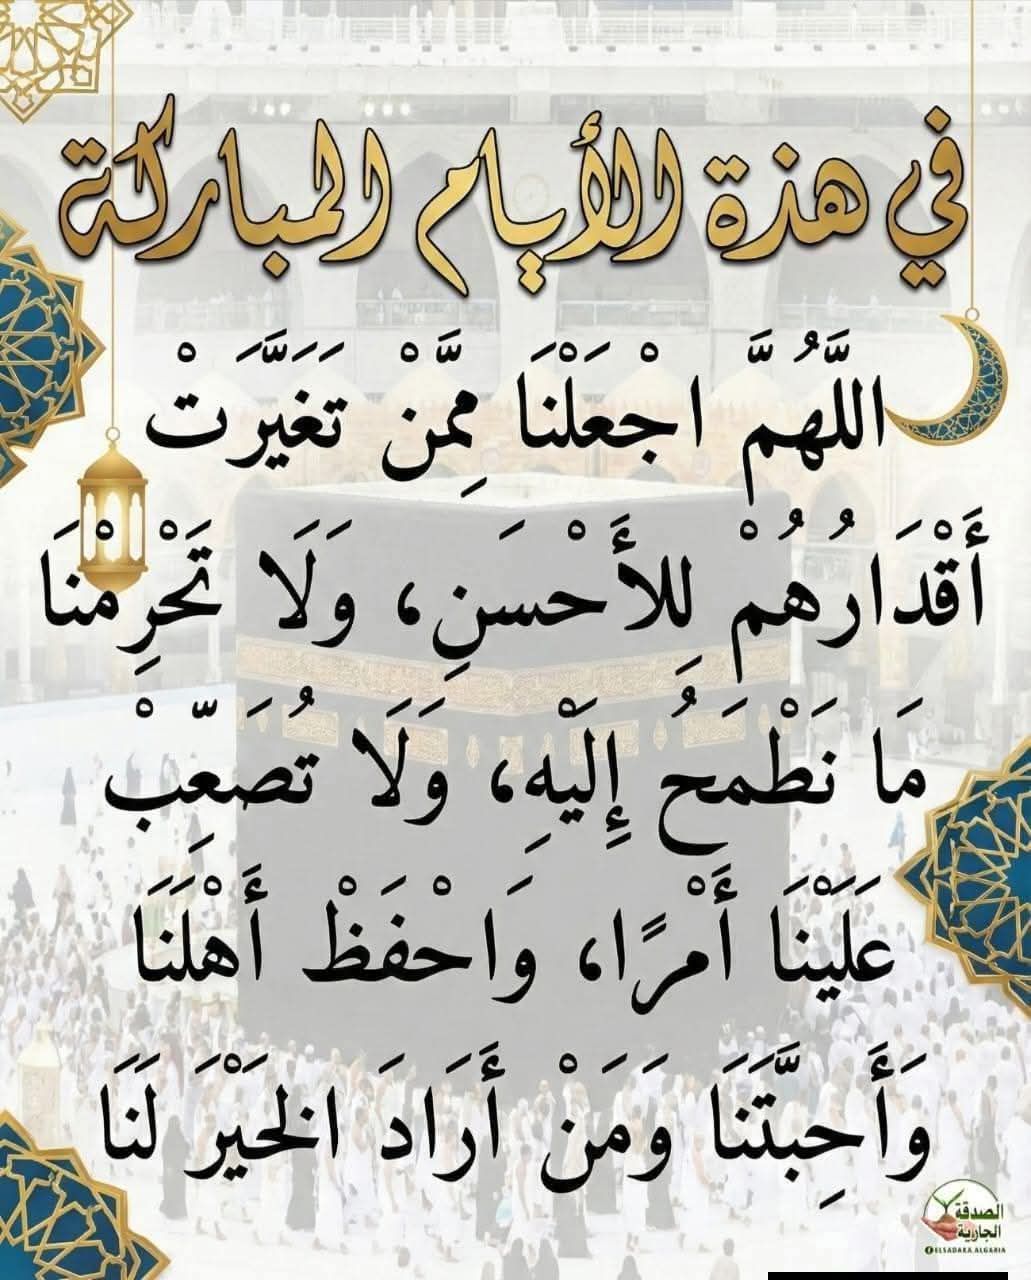 في هذة الأيام المباركة
اللَّهُمَّ اجْعَلْنَا مِمَّنْ تَغَيَّرَتْ
أَقْدَارُهُمْ لِلأَحْسَنِ، وَلَا تَحْرِمْنَا
مَا نَطْمَحُ إِلَيْهِ، وَلَا تُصَعِّبْ
عَلَيْنَا أَمْرًا، وَاحْفَظْ أَهْلَنَا
وَأَحِبَّتَنَا وَمَنْ أَرَادَ الخَيْرَ لَنَا
الصدقة
الجارية
ELSADAKA.ALGARIA